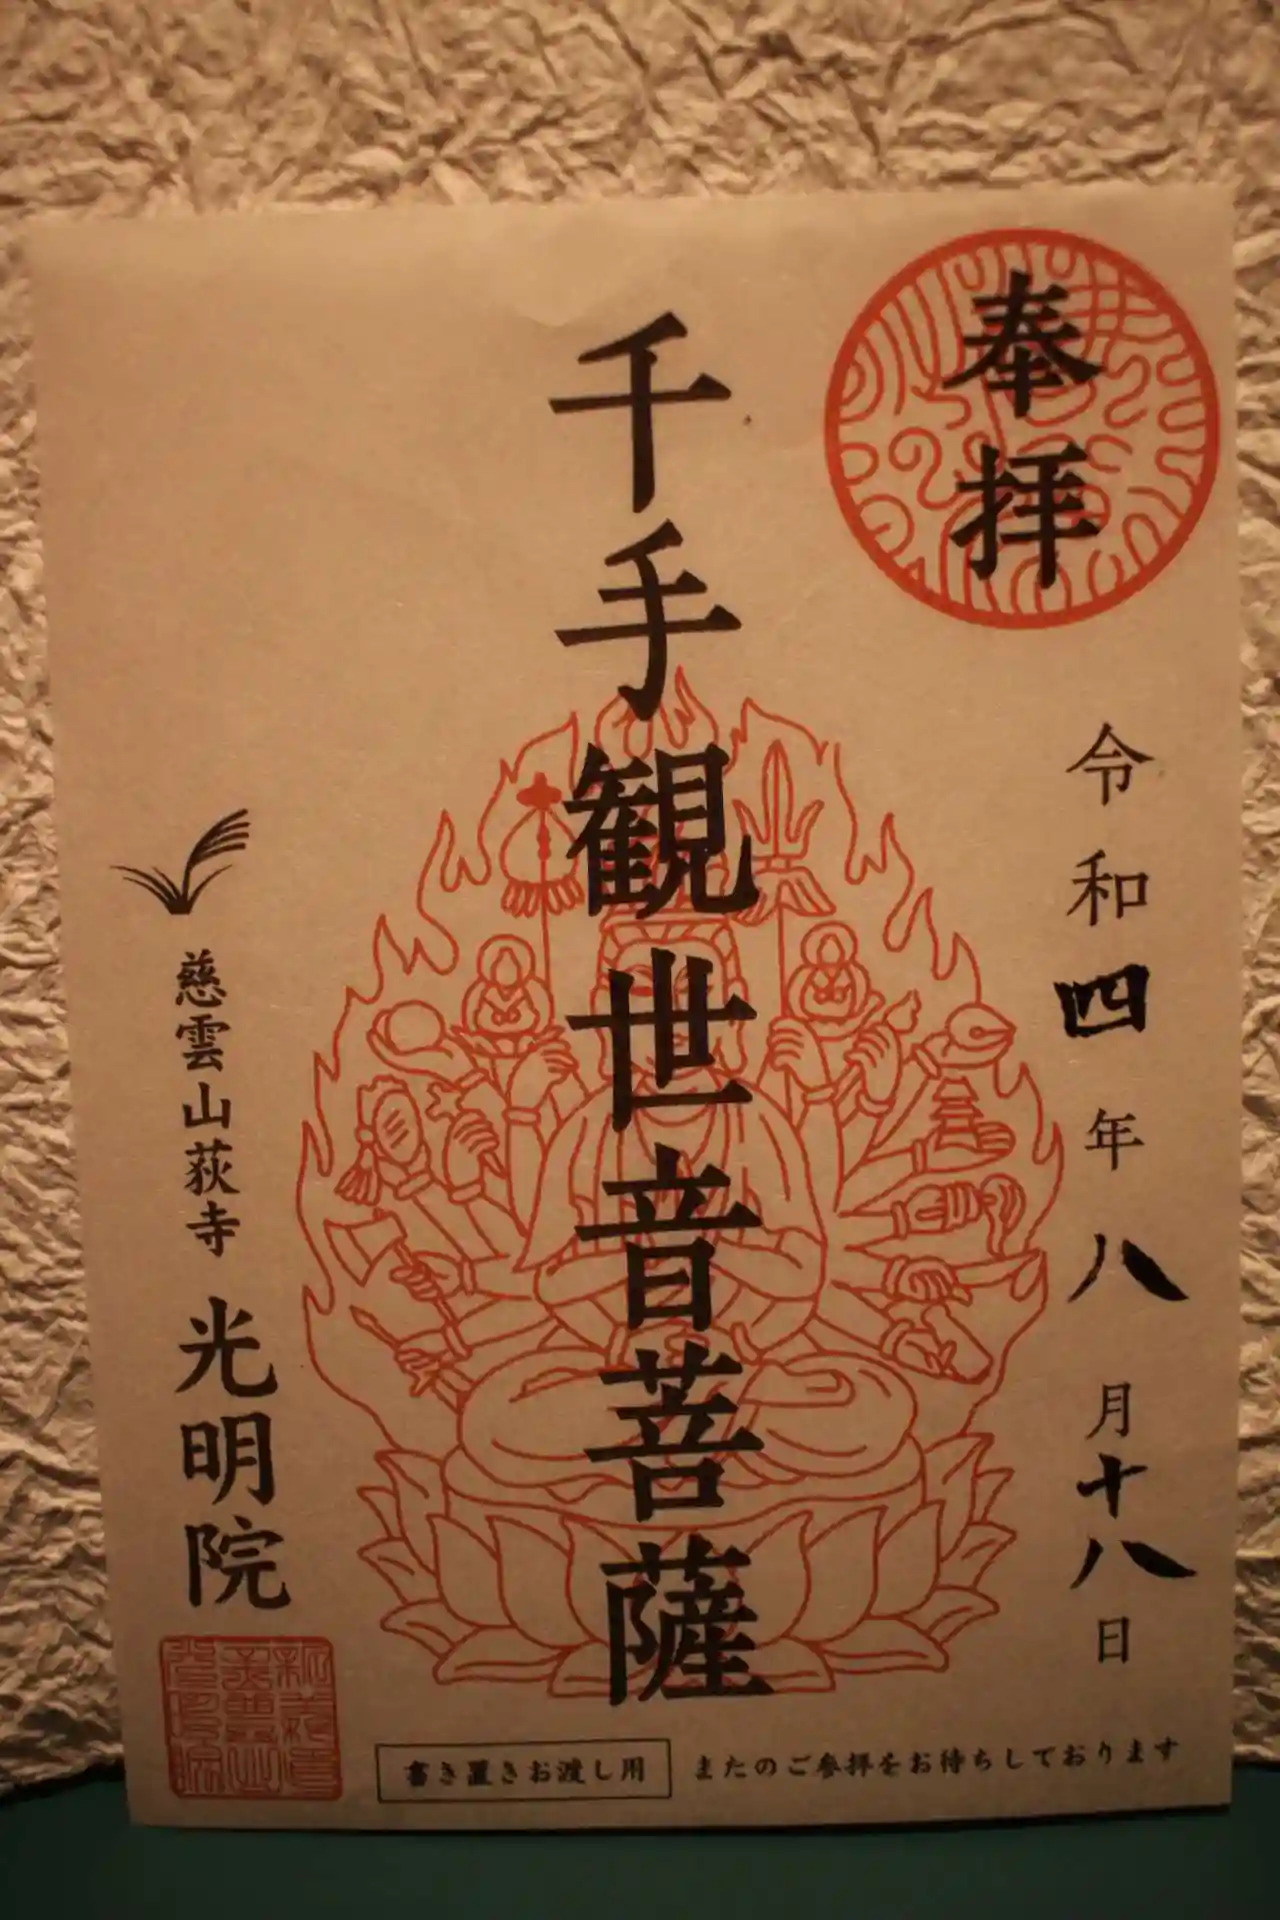 奉拝
令和四年八月十八日
千手観世音菩薩
慈雲山荻寺 光明院
書き置きお渡し用
またのご参拝をお待ちしております